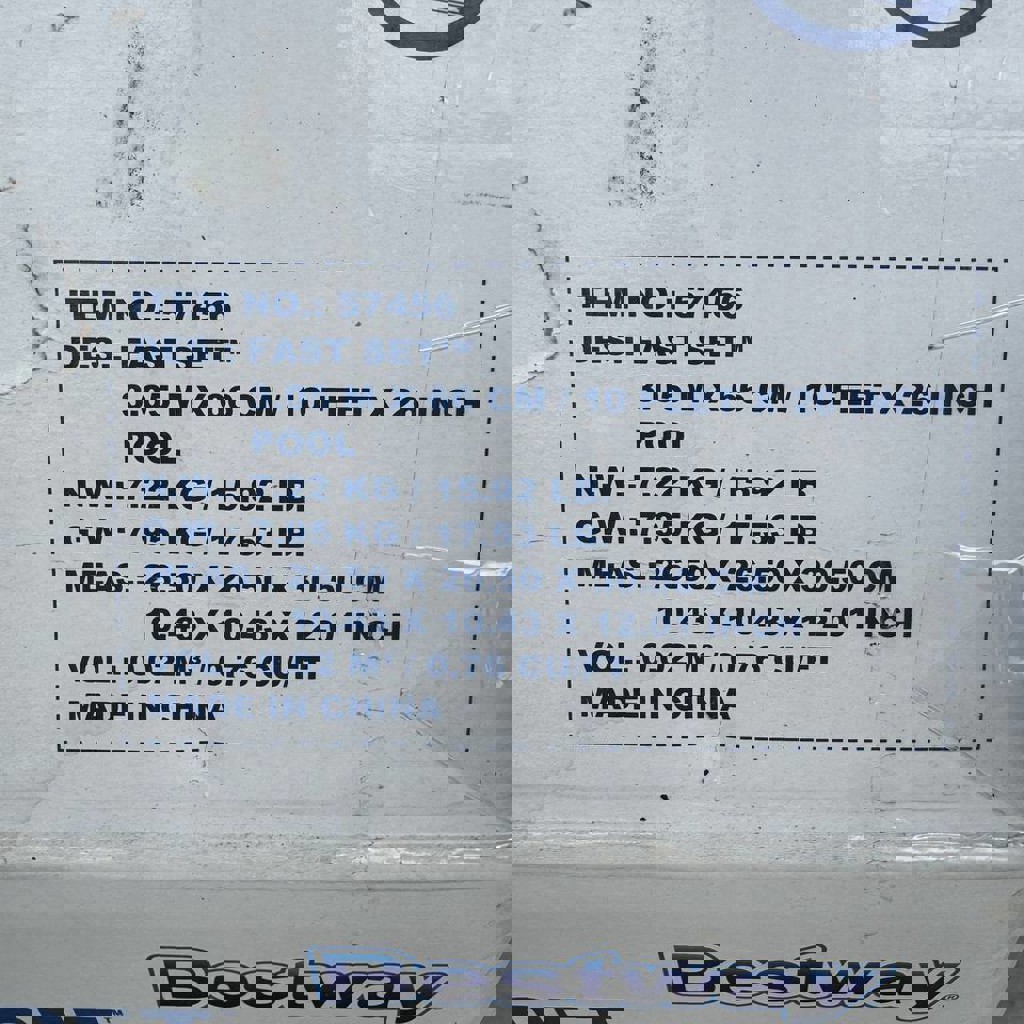 ITEM NO.: 57456
DES.: FAST SET™
3.05 M X 66 CM / 10 FEET X 26 INCH
POOL
N.W.: 7.22 KG / 15.92 LB
G.W.: 7.95 KG / 17.53 LB
MEAS.: 26.50 X 26.50 X 30.50 CM
10.43 X 10.43 X 12.01 INCH
VOL.: 0.02 M³ / 0.76 CU/FT
MADE IN CHINA
ITEM NO.: 57456
DES.: FAST SET™
3.05 M X 66 CM / 10 FEET X 26 INCH
POOL
N.W.: 7.22 KG / 15.92 LB
G.W.: 7.95 KG / 17.53 LB
MEAS.: 26.50 X 26.50 X 30.50 CM
10.43 X 10.43 X 12.01 INCH
VOL.: 0.02 M³ / 0.76 CU/FT
MADE IN CHINA
Bestway Bestway®